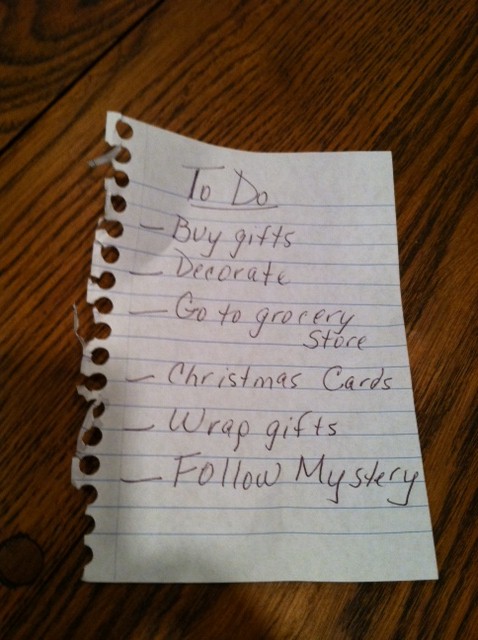 To Do
- Buy gifts
- Decorate
- Go to grocery
Store
- Christmas Cards
- Wrap gifts
- Follow Mystery